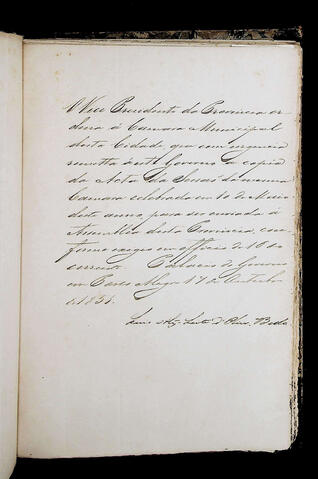 O Vice Presidente da Provincia or
dena á Camara Municipal
desta Cidade, que com urgencia
remetta á este Governo a copia
da Acta da Sessão da mesma
Camara celebrada em 10 de
deste anno, para ser enviada á
Assemblea desta Provincia, con
forme exige em officio de 16 do
corrente. Palacio do Governo
em Porto Alegre 17 de Outubro
de 1851.
Luis Alz. Leite d'Oliv. Bello